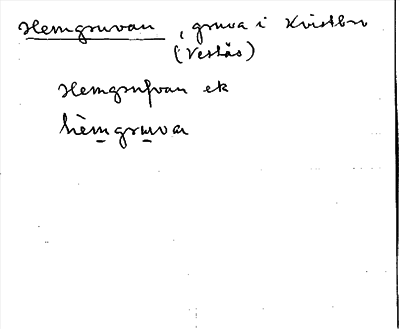 Hemgruvan, gruva i Kvistbro
(Vestås)
Hemgrufvan ek
hèmgruvar